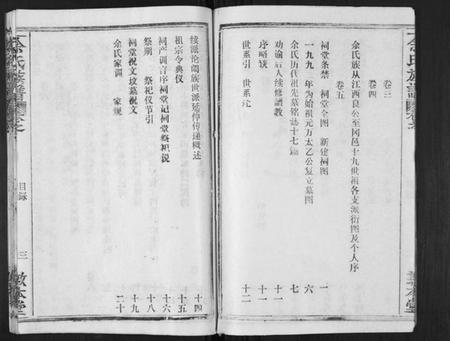 卷三
卷四
余氏族从江西良公至冈邑十九世祖各支派衍图及个人序
卷五
祠堂条禁 祠堂全图 新建祠图 一
一九九 年为始祖元万太乙公复立墓图 六
余氏历代祖先墓铭志十七 七
劝谕后人续修谱教 十一
序略 十一
世系引 世系 十二
续派论阔族世派延伸传递概述 十四
祖宗令典仪 十五
祠产训言序祠堂记祠堂祭祀说 十六
祭期 祭祀仪节引 十八
祠堂祝文坟墓祝文 十九
余氏家训 家规 二十
余氏族谱
目录
三
敦本堂